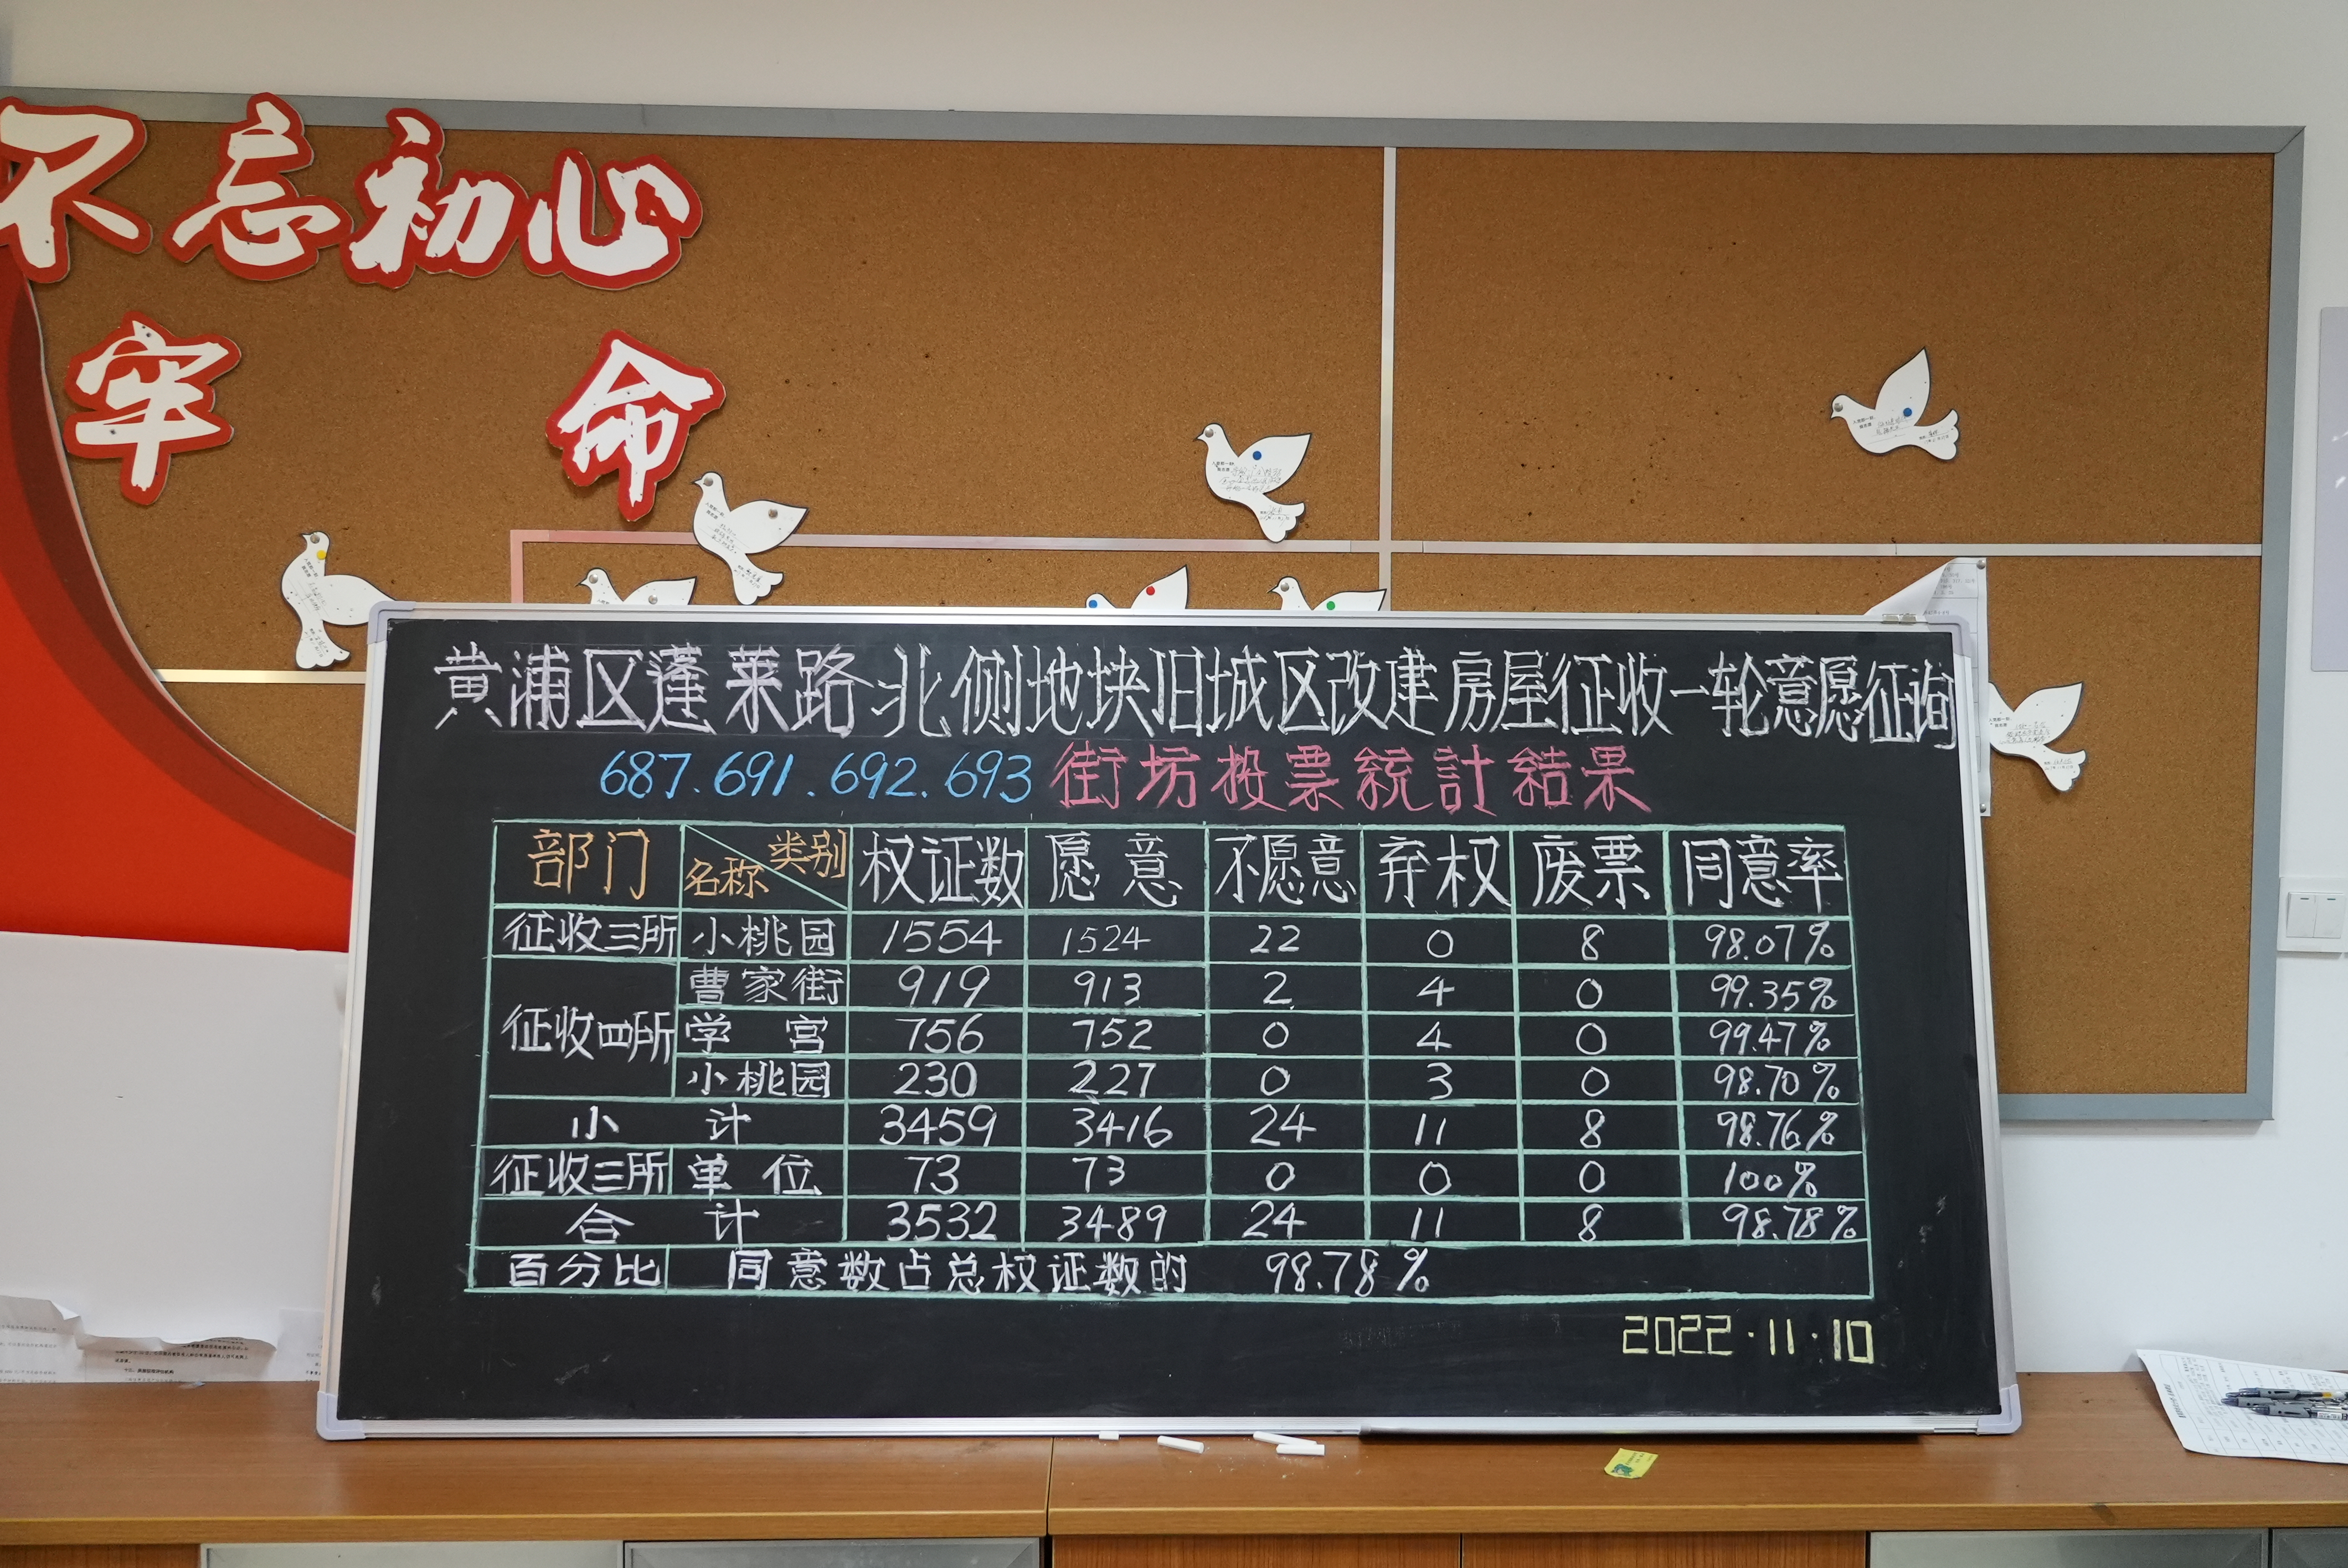 不忘初心
牢 命
黄浦区蓬莱路北侧地块旧城区改建房屋征收一轮意愿征询
687.691.692.693街坊投票統計結果
部门 类别 名称 权证数 愿意 不愿意 弃权 废票 同意率
征收三所 小桃园 1554 1524 22 0 8 98.07%
征收四所 曹家街 919 913 2 4 0 99.35%
学宫 756 752 0 4 0 99.47%
小桃园 230 227 0 3 0 98.70%
小计 3459 3416 24 11 8 98.76%
征收三所 单位 73 73 0 0 0 100%
合计 3532 3489 24 11 8 98.78%
百分比 同意数占总权证数的 98.78%
2022.11.10